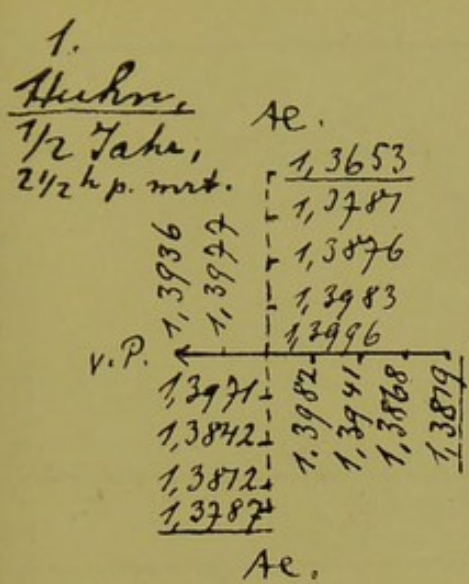 1.
Huhn,
1/2 Jahr,
2 1/2 h p. mrt.
Ae.
1,3653
1,3781
1,3876
1,3983
1,3996
1,3936
1,3977
v.P.
1,3971
1,3842
1,3812
1,3787
1.3982
1,3941
1,3868
1,3819
Ae.